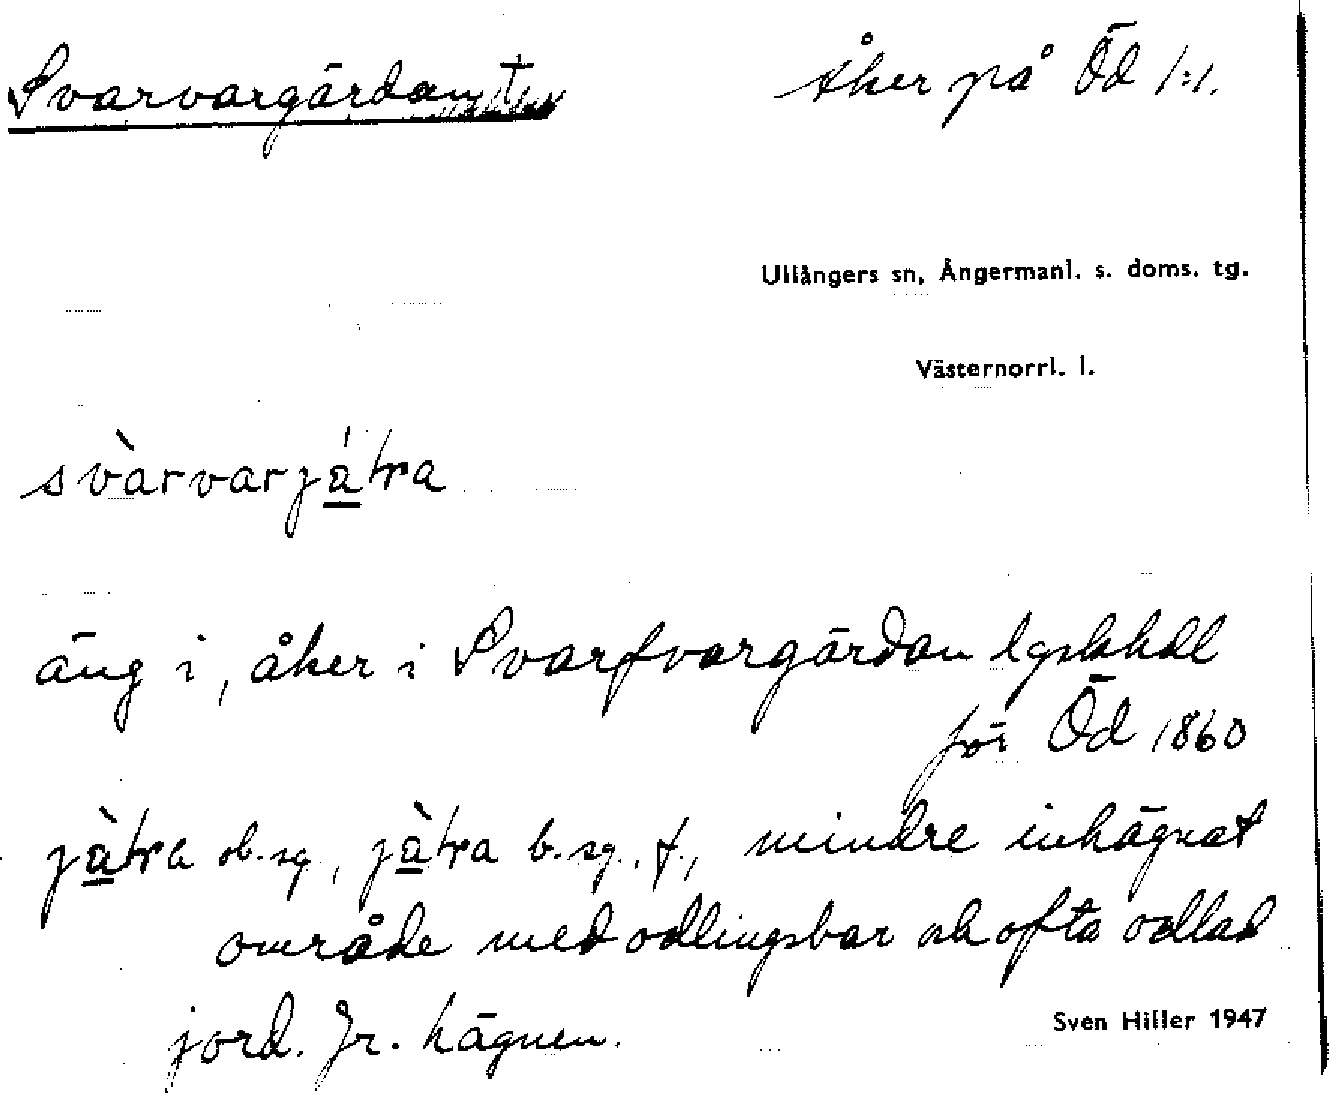 Svarvargärdan
åker på Öd 1:1.
Ullångers sn, Ångermanl. s. doms. tg.
Västernorrl. l.
svàrvarjátra
äng i, åker i Svarfvargärdan lgskhdl
för Öd 1860
jàtra ob. sg., jàtra b. sg., f., mindre inhägnat
område med odlingsbar och ofta odlad
jord. Jr. hägnen.
Sven Hiller 1947